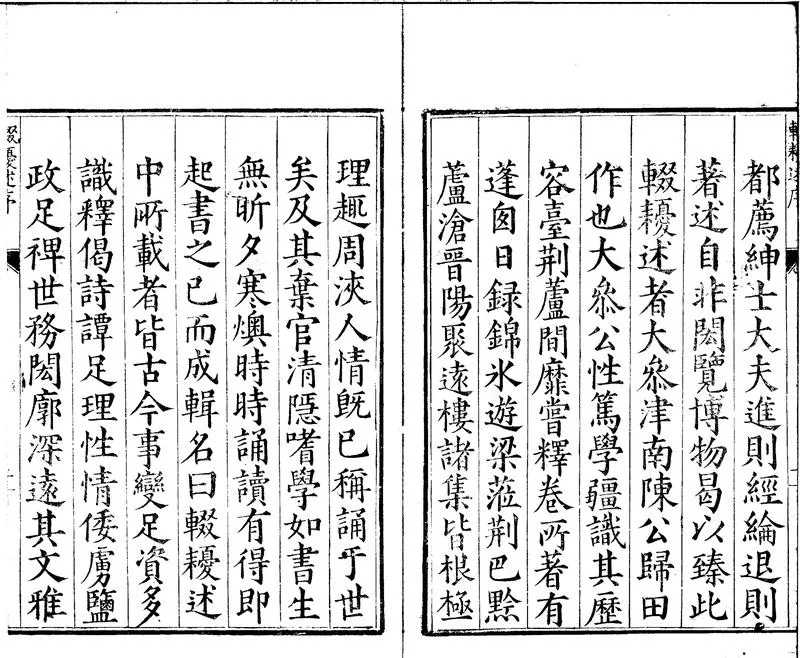 都薦紳士大夫進則經綸退則
著述自非閎覽博物曷以臻此
輟耰述者大叅津南陳公歸田
作也大叅公性篤學疆識其歷
容臺荆蘆間靡嘗釋卷所著有
蓬囱日録錦氷遊梁蒞荆巴黔
蘆滄晉陽聚遠樓諸集皆根極
理趣周浹人情旣已稱誦于世
矣及其棄官清隱嗜學如書生
無昕夕寒燠時時誦讀有得即
起書之已而成輯名曰輟耰述
中所載者皆古今事變足資多
識釋偈詩譚足理性情倭虜鹽
政足禆世務閎廓深遠其文雅
輟耰述序